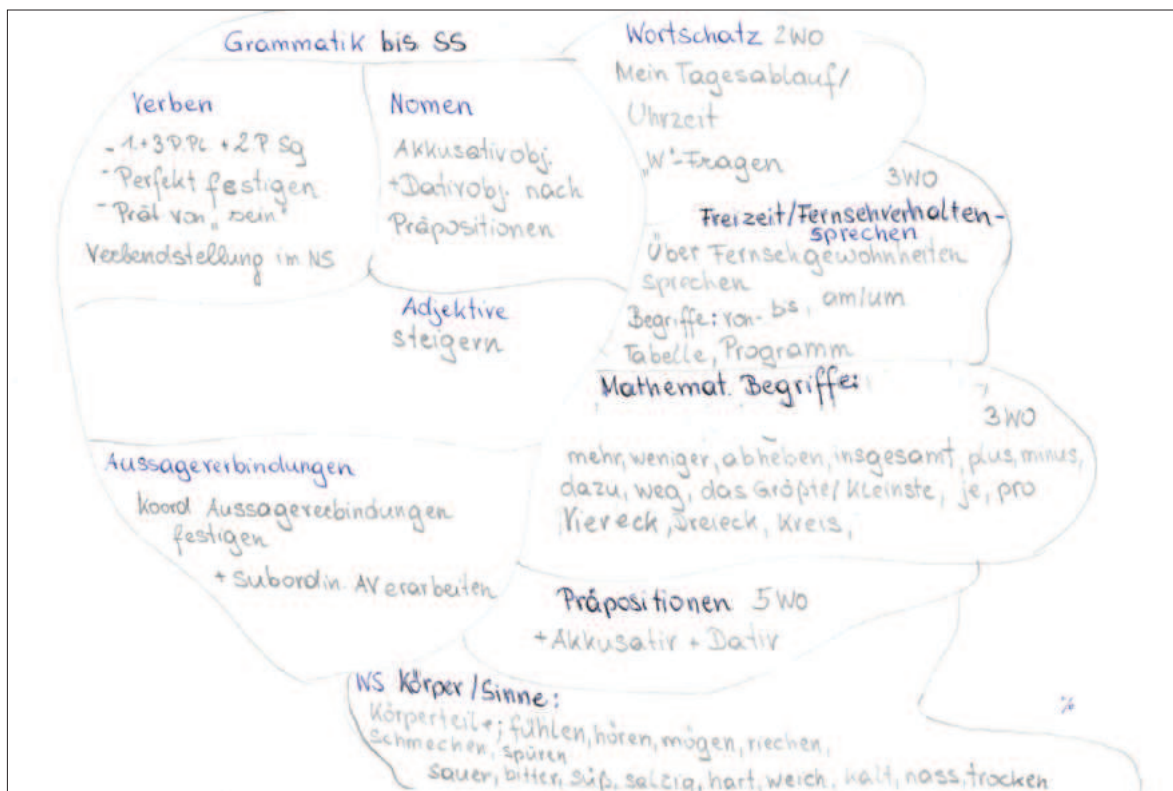 Grammatik bis SS
Verben
- 1.+3.P.Pl. + 2.P Sg
- Perfekt festigen
- Prät von „sein“
Verbendstellung im NS
Nomen
Akkusativobj.
+Dativobj. nach
Präpositionen
Adjektive
steigern
Aussageverbindungen
Koord Aussageverbindungen
festigen
+ Subordin. AV erarbeiten
Wortschatz 2WO
Mein Tagesablauf/
Uhrzeit
„W“-Fragen
3WO
Freizeit/Fernsehverhalten-
sprechen
Über Fernsehgewohnheiten
sprechen
Begriffe: von- bis, am/um
Tabelle, Programm
Mathemat. Begriffe:
3WO
mehr, weniger, abheben, insgesamt, plus, minus,
dazu, weg, das Größte/Kleinste, je, pro
Viereck, Dreieck, Kreis,
Präpositionen 5WO
+Akkusativ + Dativ
WS Körper/Sinne:
Körperteile; fühlen, hören, mögen, riechen,
schmecken, spüren
sauer, bitter, süß, salzig, hart, weich, kalt, nass, trocken